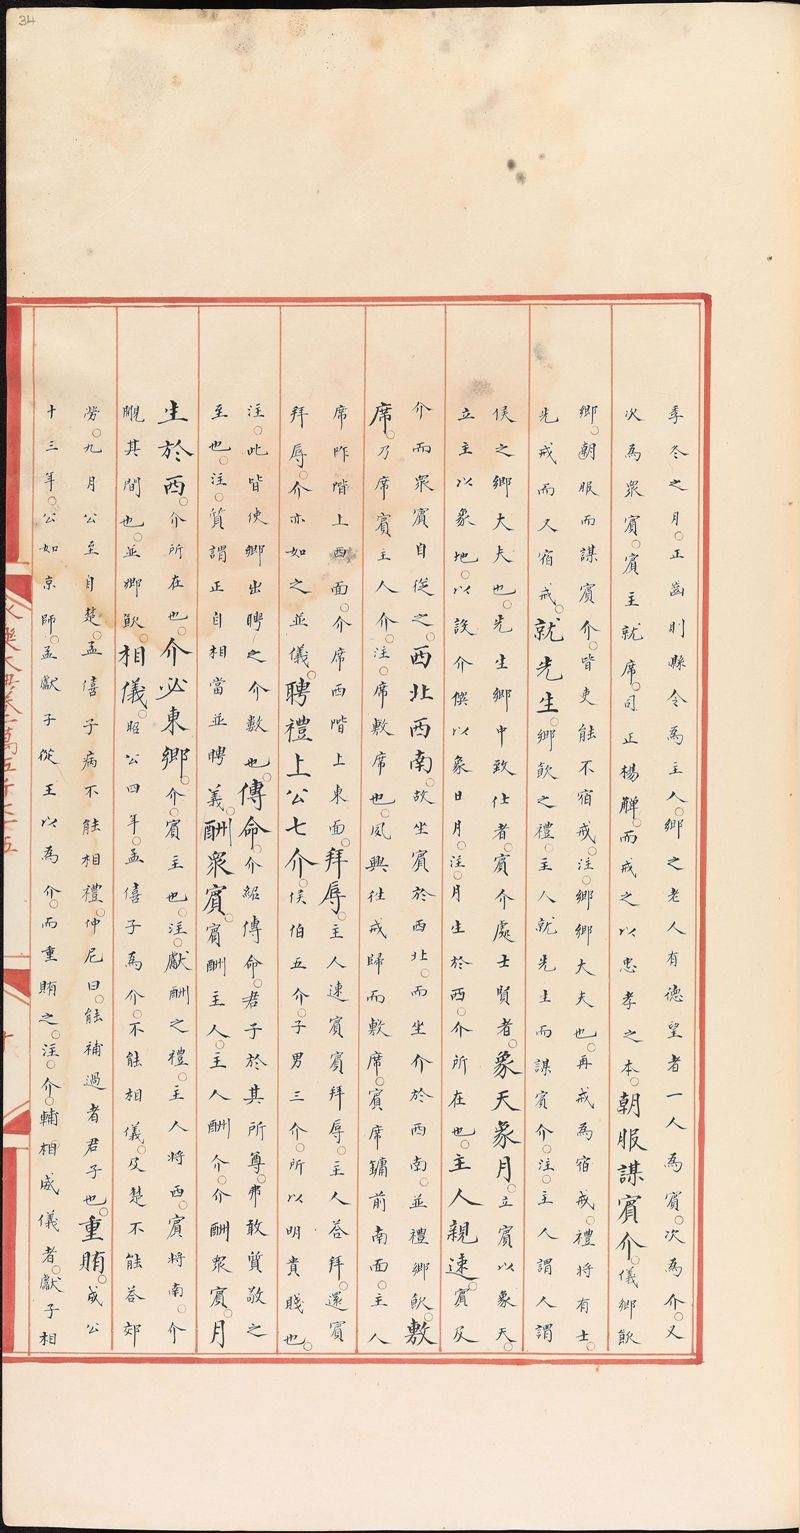 34
季冬之月。正齒則縣令為主人。鄉之老人有德望者一人為賓。次為介。又
次為眾賓。賓主就席。司正楊觶。而戒之以忠孝之本。朝服謀賓介。儀鄉飲
鄉。朝服而謀賓介。皆吏能不宿戒。注。鄉鄉大夫也。再戒為宿戒。禮將有士。
先戒而人宿戒。就先生。鄉飲之禮。主人就先生而謀賓介。注。主人謂人謂
侯之鄉大夫也。先生鄉中致仕者。賓介處士賢者。象天象月。立賓以象天。
立主以象地。以設介僎以象日月。注。月生於西。介所在也。主人親速。賓及
介而眾賓自從之。西北西南。故坐賓於西北。而坐介於西南。並禮鄉飲。敷
席。乃席賓主人介。注。席敷席也。夙興往戒歸而敷席。賓席牖前南面。主人
席阼階上西面。介席西階上東面。拜辱。主人速賓賓拜辱。主人荅拜。還賓
拜辱。介亦如之並儀。聘禮上公七介。侯伯五介。子男三介。所以明貴賤也。
注。此皆使鄉出聘之介數也。傳命。介紹傳命。君子於其所尊。弗敢質敬之
至也。注。質謂正自相當並聘義。酬眾賓。賓酬主人。主人酬介。介酬眾賓。月
生於西。介所在也。介必東鄉。介。賓主也。注。獻酬之禮。主人將西。賓將南。介
覵其間也。並鄉飲。相儀。昭公四年。孟僖子為介。不能相儀。及楚不能荅郊
勞。九月公至自楚。孟僖子病不能相禮。仲尼曰。能補過者君子也。重賄。成公
十三年。公如京師。孟獻子從王以為介。而重賄之。注。介。輔相威儀者。獻子相